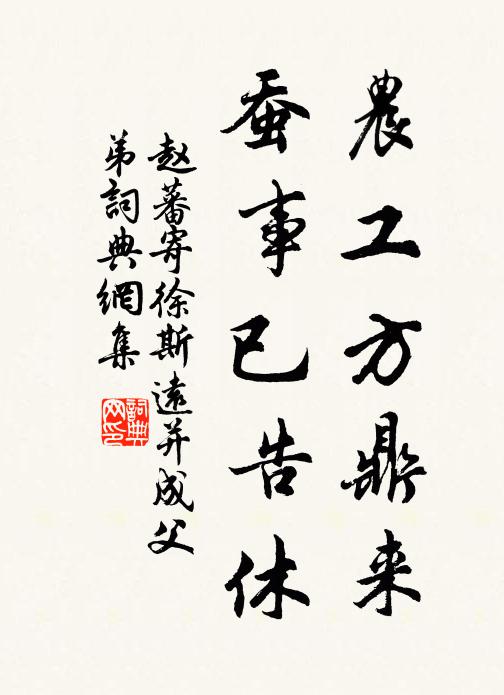 農工方鼎来
蚕事已告休
赵蕃寄徐斯遠并成父
弟詞典網集
詞典
网印